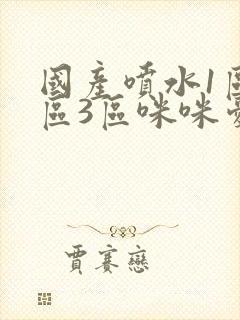 國產噴水1區
區3區咪咪愛
賈賽戀